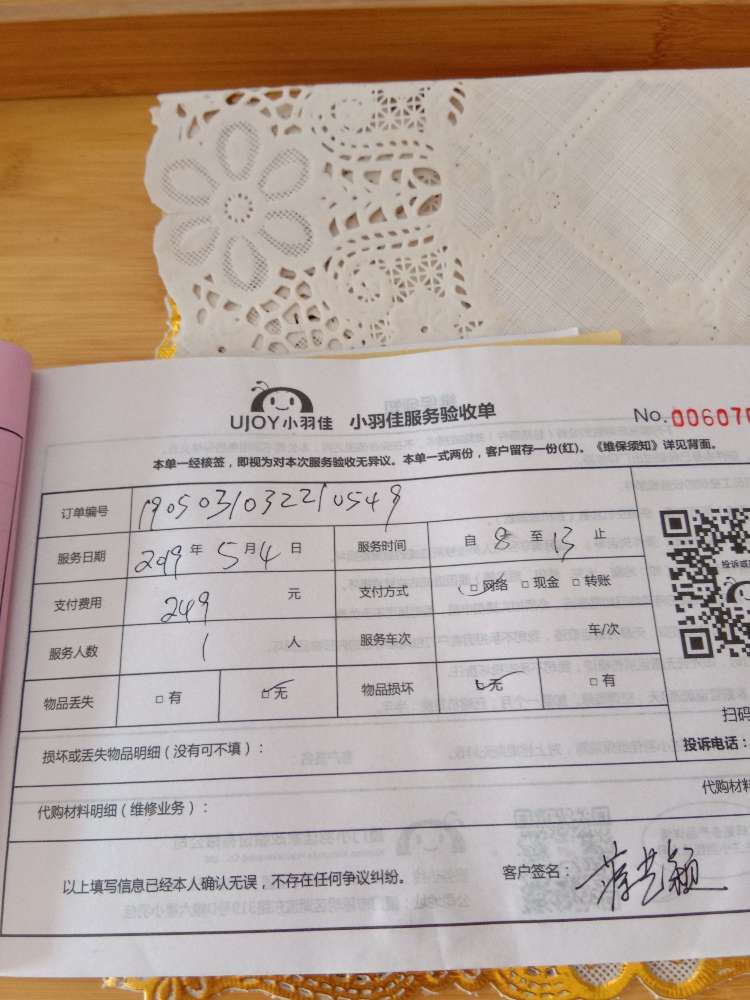 UJOY小羽佳 小羽佳服务验收单 No.00607
本单一经核签，即视为对本次服务验收无异议。本单一式两份，客户留存一份(红)。《维保须知》详见背面。
订单编号 1905031032210549
服务日期 2019 年 5 月 4 日 服务时间 自 8 至 13 止
支付费用 249 元 支付方式 □ 网络 □ 现金 □ 转账
服务人数 1 人 服务车次 车/次
物品丢失 □ 有 □ 无 物品损坏 □ 无 □ 有
扫码
损坏或丢失物品明细（没有可不填）： 投诉电话：
代购材料明细（维修业务）： 代购材料
以上填写信息已经本人确认无误，不存在任何争议纠纷。 客户签名：